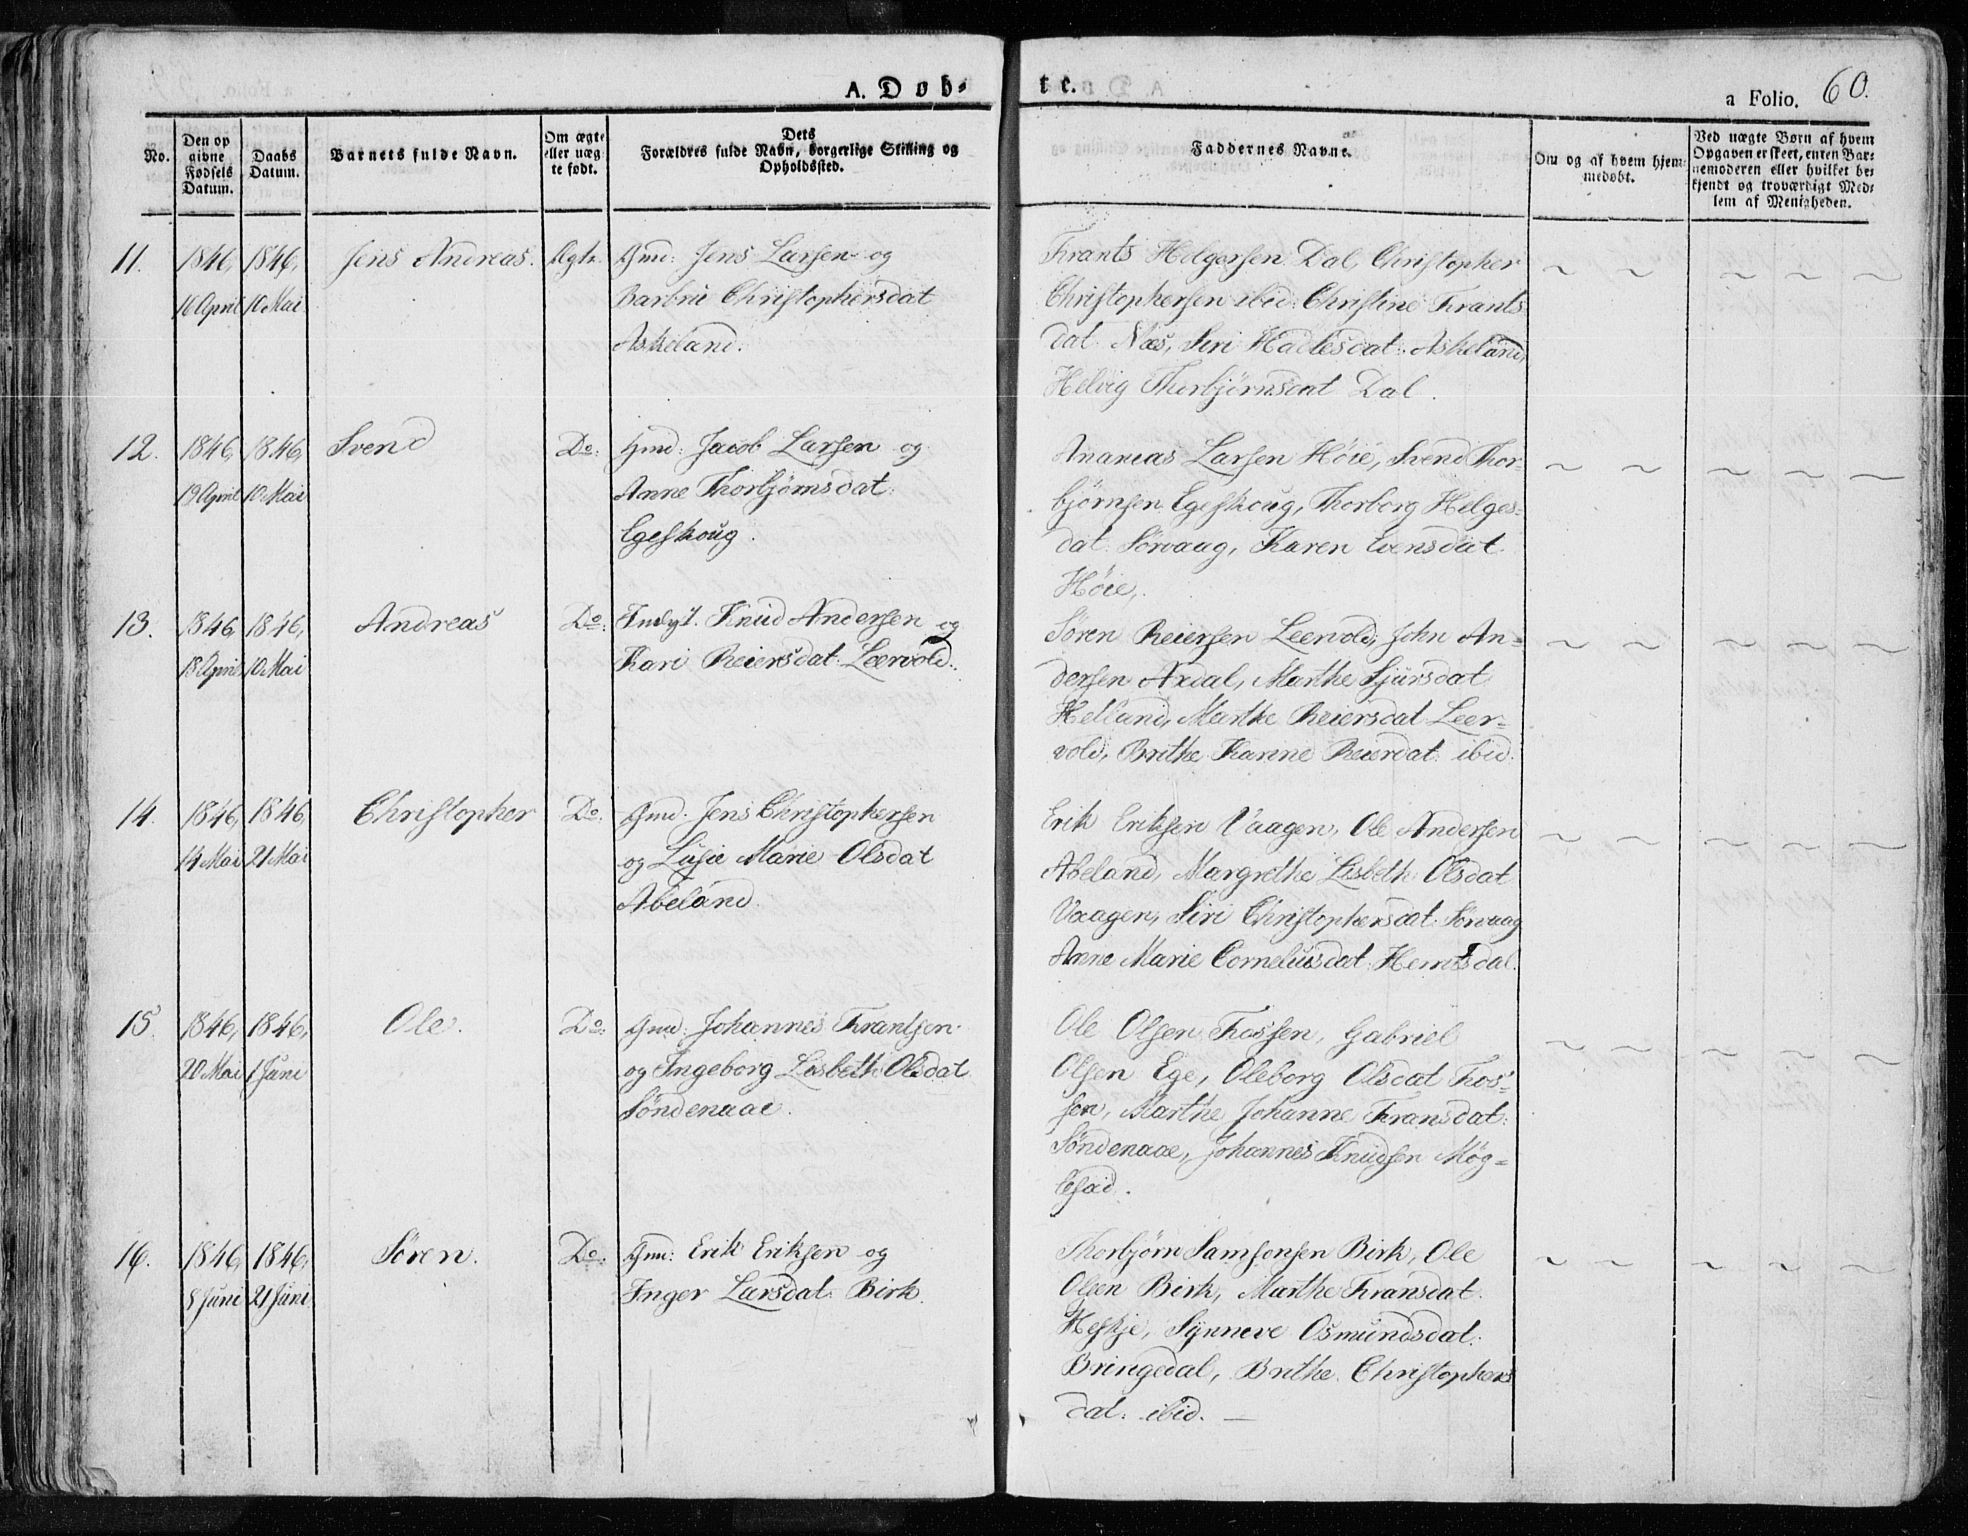 A. Døb-
te.
a Folio. 60.
No.
Den op
givne
Fødsels
Datum.
Daabs
Datum.
Barnets fulde Navn.
Om ægte
eller uæg-
te født.
Dets
Forældres fulde Navn, borgerlige Stilling og
Opholdssted.
Faddernes Navne.
Om og af hvem hjem-
medøbt.
Ved uægte Børn af hvem
Opgaven er skeet, enten Bar-
nemoderen eller hvilket be-
kjendt og troværdigt Med-
lem af Menigheden.
11.
1846,
16 April
1846,
10 Mai
Jens Andreas.
Ægte.
Gmd: Jens Larsen og
Barbrue Christophersdat
Askeland.
Frants Helgersen Dal, Christopher
Christophersen ibid: Christine Frants
dat Næs, Siri Hadlesdat: Askeland,
Helvig Thorbjørnsdat Dal.
12.
1846,
19 April
1846,
10 Mai
Svend
Do:
Gmd: Jacob Larsen og
Anne Thorbjørnsdat:
Egeskoug.
Ananias Larsen Höie, Svend Thor-
bjørnsen Egeskoug, Thorborg Helges-
dat: Sörvaag, Karen Evensdat
Höie,
13.
1846,
18 April
1846,
10 Mai
Andreas
Do:
Indgt. Knud Andersen og
Kari Reiersdat: Leervold.
Sören Reiersen Leervold, John An-
dersen Axdal, Marthe Sjursdat
Helland, Marthe Reiersdat Leer-
vold, Brithe Karine Reierdat: ibid:
14.
1846,
14 Mai
1846,
21 Mai
Christopher
Do:
Gmd: Jens Christophersen
og Lusie Marie Olsdat
Abeland.
Erik Eriksen Vaagen, Ole Andersen
Abeland, Margrethe Lisbeth Olsdat
Vaagen, Siri Christophersdat: Sörvaag
Anne Marie Corneliusdat: Hemtsdal.
15.
1846,
20 Mai
1846,
1 Juni
Ole.
Do:
Gmd: Johannes Frantsen
og Ingeborg Lisbeth Olsdat
Söndenaae.
Ole Olsen Fossen, Gabriel
Olsen Ege, Oleborg Olsdat Fos-
sen, Marthe Johanne Fransdat:
Söndenaae, Johannes Knudsen Møg-
lesæd.
16.
1846,
8 Juni
1846,
21 Juni
Sören.
Do:
Gmd: Erik Eriksen og
Inger Larsdat: Birk.
Thorbjørn Samsonsen Birk, Ole
Olsen Birk, Marthe Fransdat.
Heskje, Synneve Osmundsdat:
Bringedal, Brithe Christophers
dat: ibid.